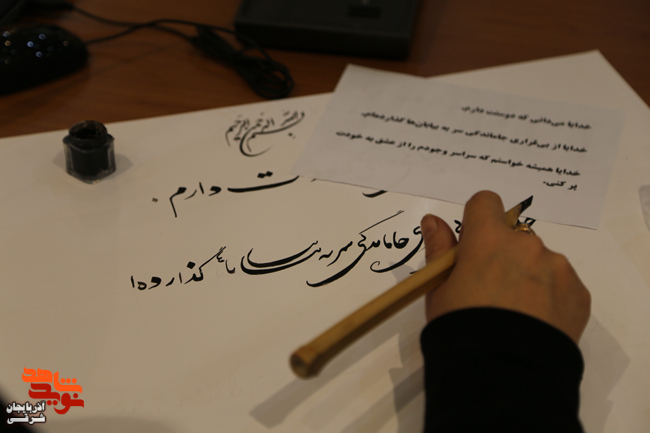 بسم الله الرحمن الرحیم
خدایا می‌دانی که دوستت دارم.
خدایا از بی‌قراری جاماندگی سر به بیابان‌ها گذارده‌ام.
خدایا همیشه خواستم که سراسر وجودم را از عشق به خودت
پر کنی.
ت دارم.
ی جاماندگی سر به بیابانها گذارده‌ا
نوید شاهد
آذربایجان
شرقی